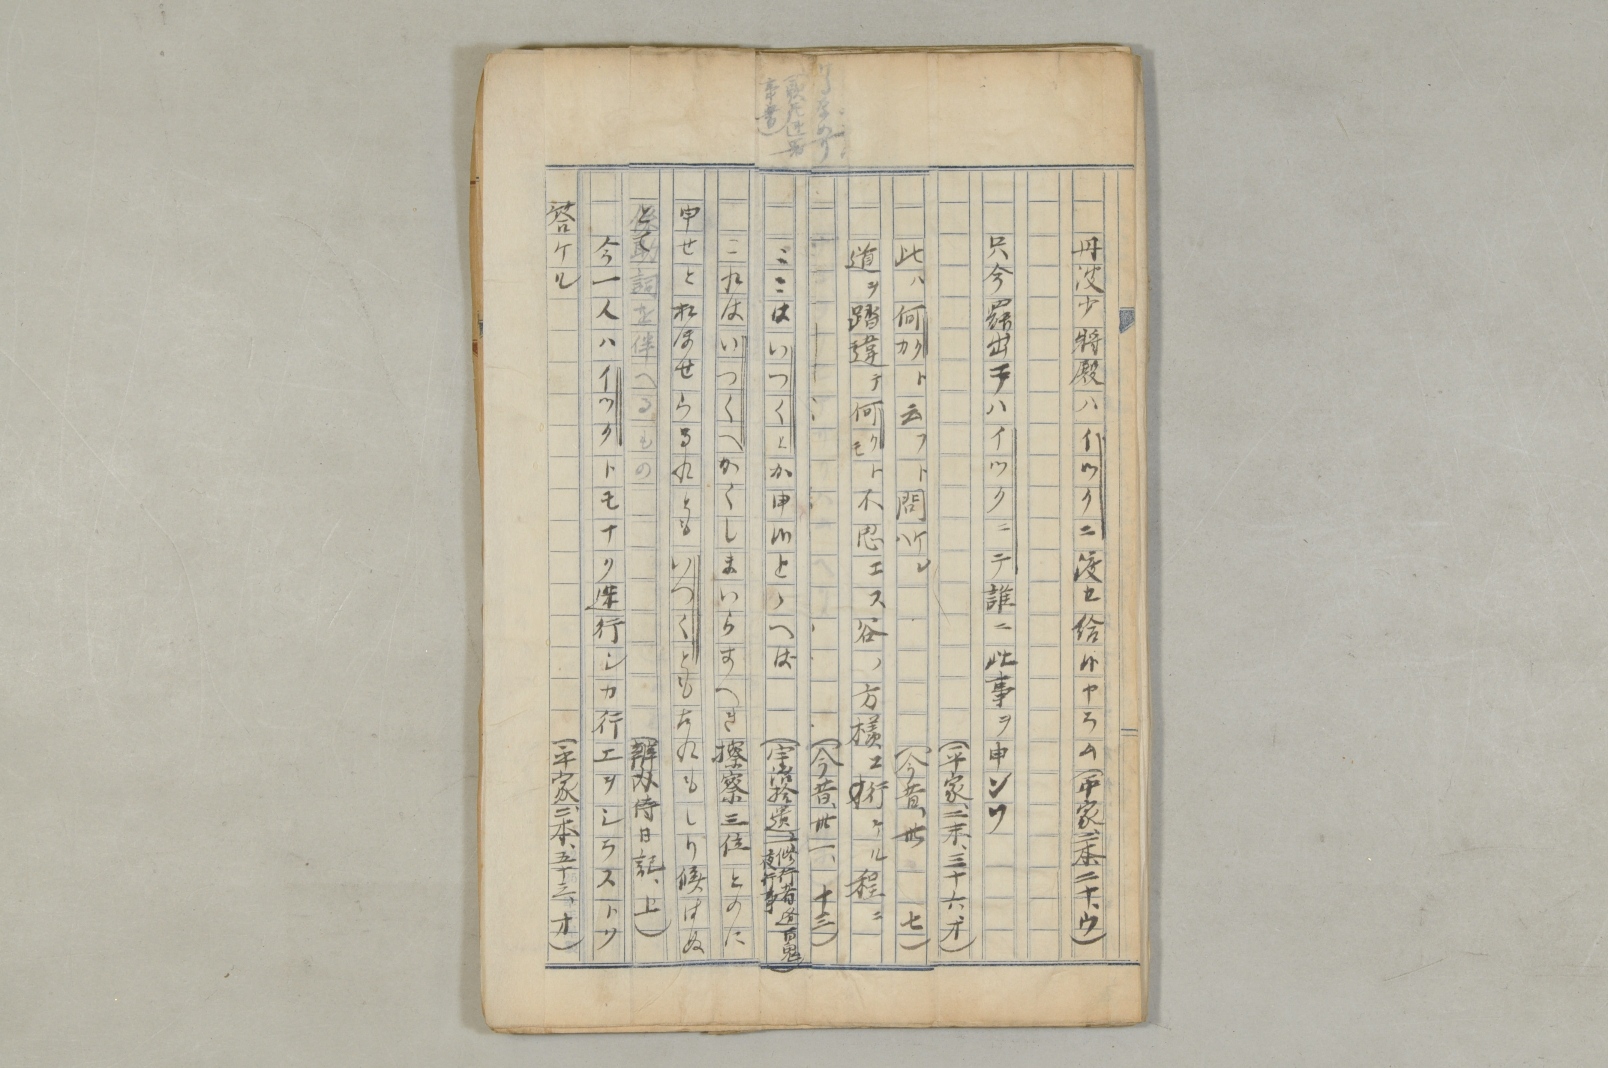 丹波少将殿ハイツクニ渡セ給ルヤラム(平家、二本、二十、ウ)
只今罷出テハイツクニテ誰ニ此事ヲ申ソツ
(平家、二末、三十六、オ)
此ハ何カクト云フト問ケレハ(今昔、廿 七)
道ヲ踏違テ何クトモ不思エス谷ノ方様エ行ケル程ニ
(今昔、廿一、十三)
ここはいつくとか申候とゝへは(宇治拾遺、二修行者逢百鬼夜行事)
これはいつくへかくしまいらすへき按察三位とのに
申せとおほせらるれともいつくともたれもしり候はぬ
(弁内侍日記、上)
助詞を伴へるもの
今一人ハイツクトモナク迷行シカ行エヲシラストソ
答ケル(平家、二本、五十三、オ)